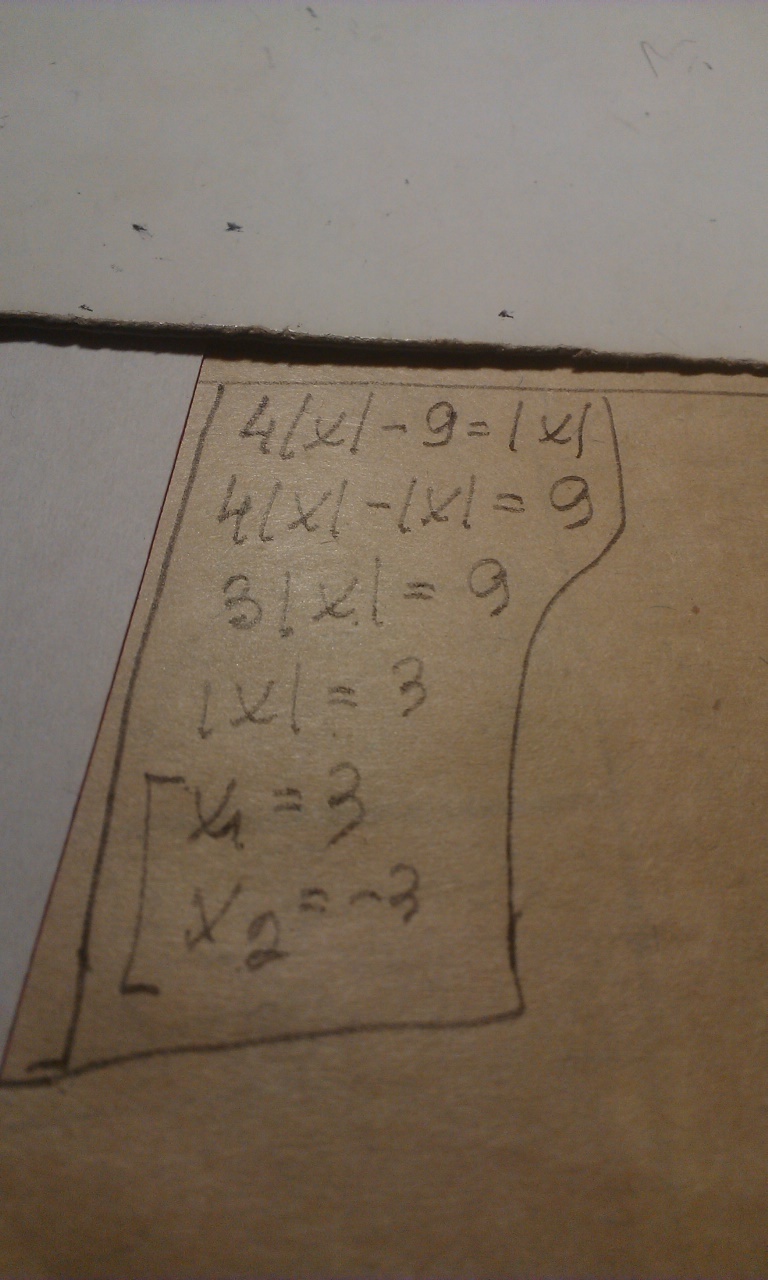 4|x| - 9 = |x|
4|x| - |x| = 9
3|x| = 9
|x| = 3
x₁ = 3
x₂ = -3